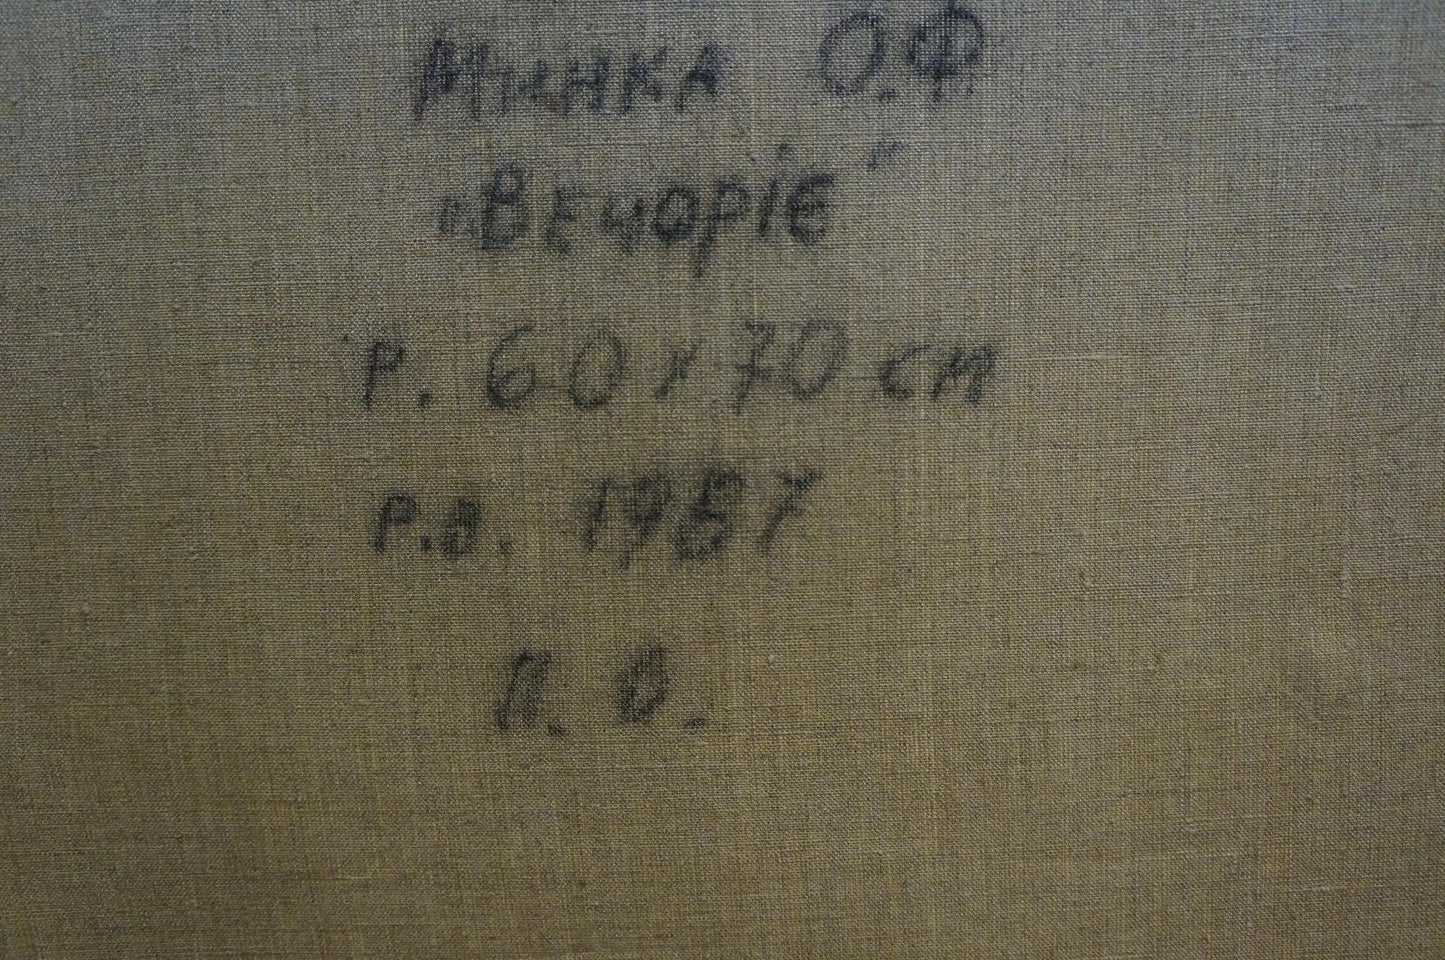 Минка О.Ф.
"Вечоріє"
Р. 60 х 70 см
Р.В. 1987
П. О.